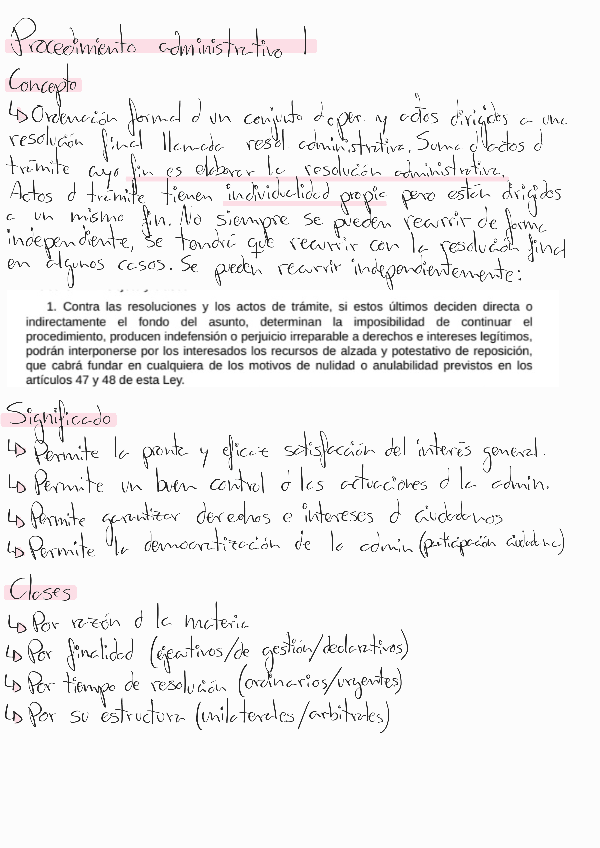 Procedimiento administrativo 1
Concepto
↳ Ordenación formal d un conjunto d oper. y actos dirigidos a una
resolución final llamada resol administrativa. Suma d actos d
trámite cuyo fin es elaborar la resolución administrativa.
Actos d trámite tienen individualidad propia pero están dirigidos
a un mismo fin. No siempre se pueden recurrir de forma
independiente, se tendrá que recurrir con la resolución final
en algunos casos. Se pueden recurrir independientemente:
1. Contra las resoluciones y los actos de trámite, si estos últimos deciden directa o
indirectamente el fondo del asunto, determinan la imposibilidad de continuar el
procedimiento, producen indefensión o perjuicio irreparable a derechos e intereses legítimos,
podrán interponerse por los interesados los recursos de alzada y potestativo de reposición,
que cabrá fundar en cualquiera de los motivos de nulidad o anulabilidad previstos en los
artículos 47 y 48 de esta Ley.
Significado
↳ Permite la pronta y eficaz satisfacción del interés general.
↳ Permite un buen control d las actuaciones d la admin.
↳ Permite garantizar derechos e intereses d ciudadanos
↳ Permite la democratización de la admin (participación ciudadana)
Clases
↳ Por razón d la materia
↳ Por finalidad (ejecutivos/de gestión/declarativos)
↳ Por tiempo de resolución (ordinarios/urgentes)
↳ Por su estructura (unilaterales/arbitrales)